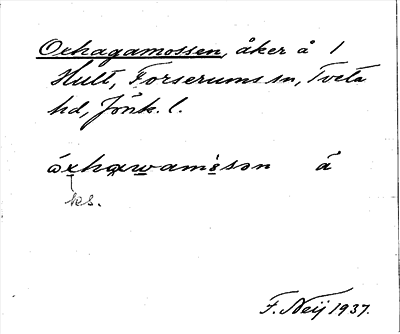 Oxhagamossen, åker å 1
Hult, Forserums sn, Tveta
hd, Jönk. l.
óxhawamòsən å
ks.
F. Neij 1937.